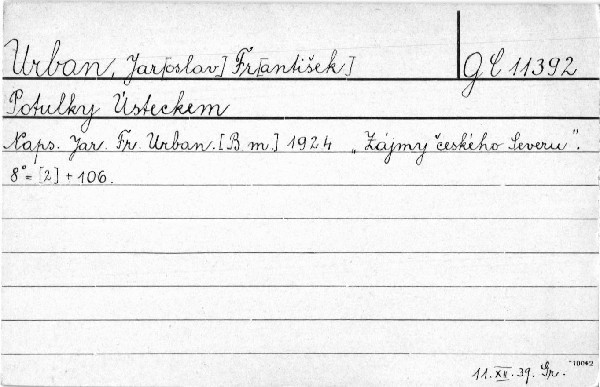 Urban, Jar[oslav] Fr[antišek] G C 11392
Potulky Ústeckem
Naps. Jar. Fr. Urban. [B. m.] 1924 „Zájmy českého Severu".
8° = [2] + 106.
10042
11. XII. 39. Gr.